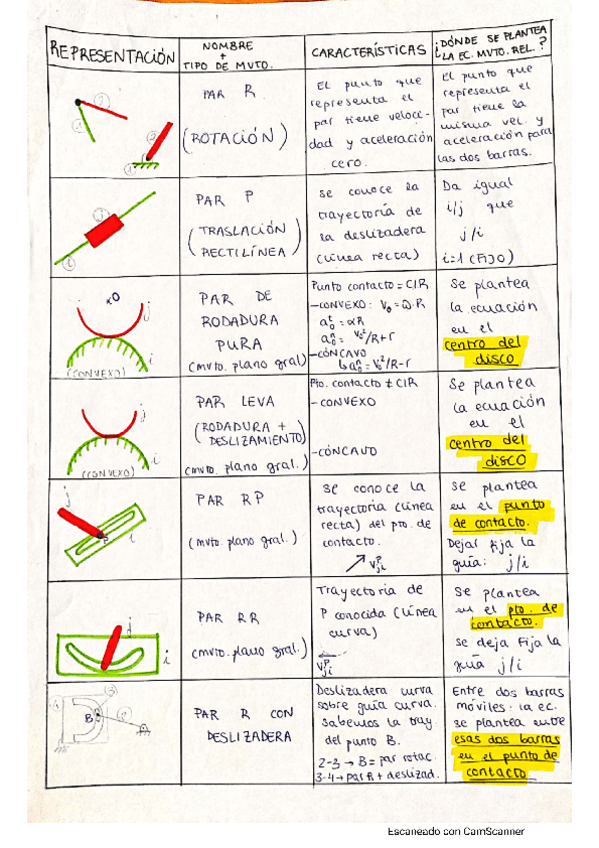 REPRESENTACIÓN
NOMBRE
+
TIPO DE MVTO.
CARACTERÍSTICAS
¿DÓNDE SE PLANTEA
LA EC. MVTO. REL.?
2
1
2
1
PAR R
(ROTACIÓN)
El punto que
representa el
par tiene veloci-
dad y aceleración
cero.
El punto que
representa el
par tiene la
misma vel. y
aceleración para
las dos barras.
j
i
PAR P
(TRASLACIÓN
RECTILÍNEA)
Se conoce la
trayectoria de
la deslizadera
(línea recta)
Da igual
i/j que
j/i
i=1 (FIJO)
O
j
i
(CONVEXO)
PAR DE
RODADURA
PURA
(mvto. plano gral)
Punto contacto = CIR
-CONVEXO: V₀ = Ω·R
a₀ᵗ = αR
a₀ⁿ = V₀²/R+r
-CÓNCAVO
↳ a₀ⁿ = V₀²/R-r
Se plantea
la ecuación
en el
centro del
disco
j
i
(CONVEXO)
PAR LEVA
(RODADURA +
DESLIZAMIENTO)
(mvto. plano gral.)
Pto. contacto ≠ CIR
- CONVEXO
-CÓNCAVO
Se plantea
la ecuación
en el
centro del
disco
j
P
i
PAR RP
(mvto. plano gral.)
Se conoce la
trayectoria (línea
recta) del pto. de
contacto.
V ᴾ ji
Se plantea
en el punto
de contacto.
Dejar fija la
guía: j/i
j
i
PAR RR
(mvto. plano gral.)
Trayectoria de
P conocida (línea
curva)
V ᴾ ji
Se plantea
en el pto. de
contacto.
Se deja fija la
guía j/i
4
3
B
2
PAR R CON
DESLIZADERA
Deslizadera curva
sobre guía curva.
Sabemos la tray
del punto B.
2-3 → B = par rotac.
3-4 → par R + deslizad.
Entre dos barras
móviles: la ec.
se plantea entre
esas dos barras
en el punto de
contacto
Escaneado con CamScanner